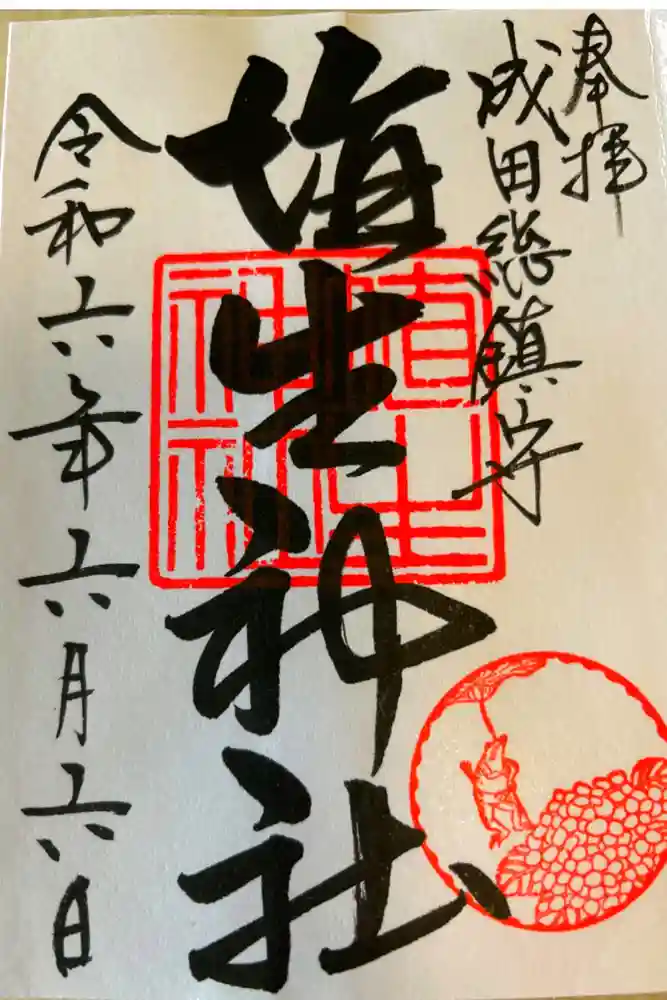 奉拝
成田総鎮守
埴生神社
埴生神社
令和六年六月六日